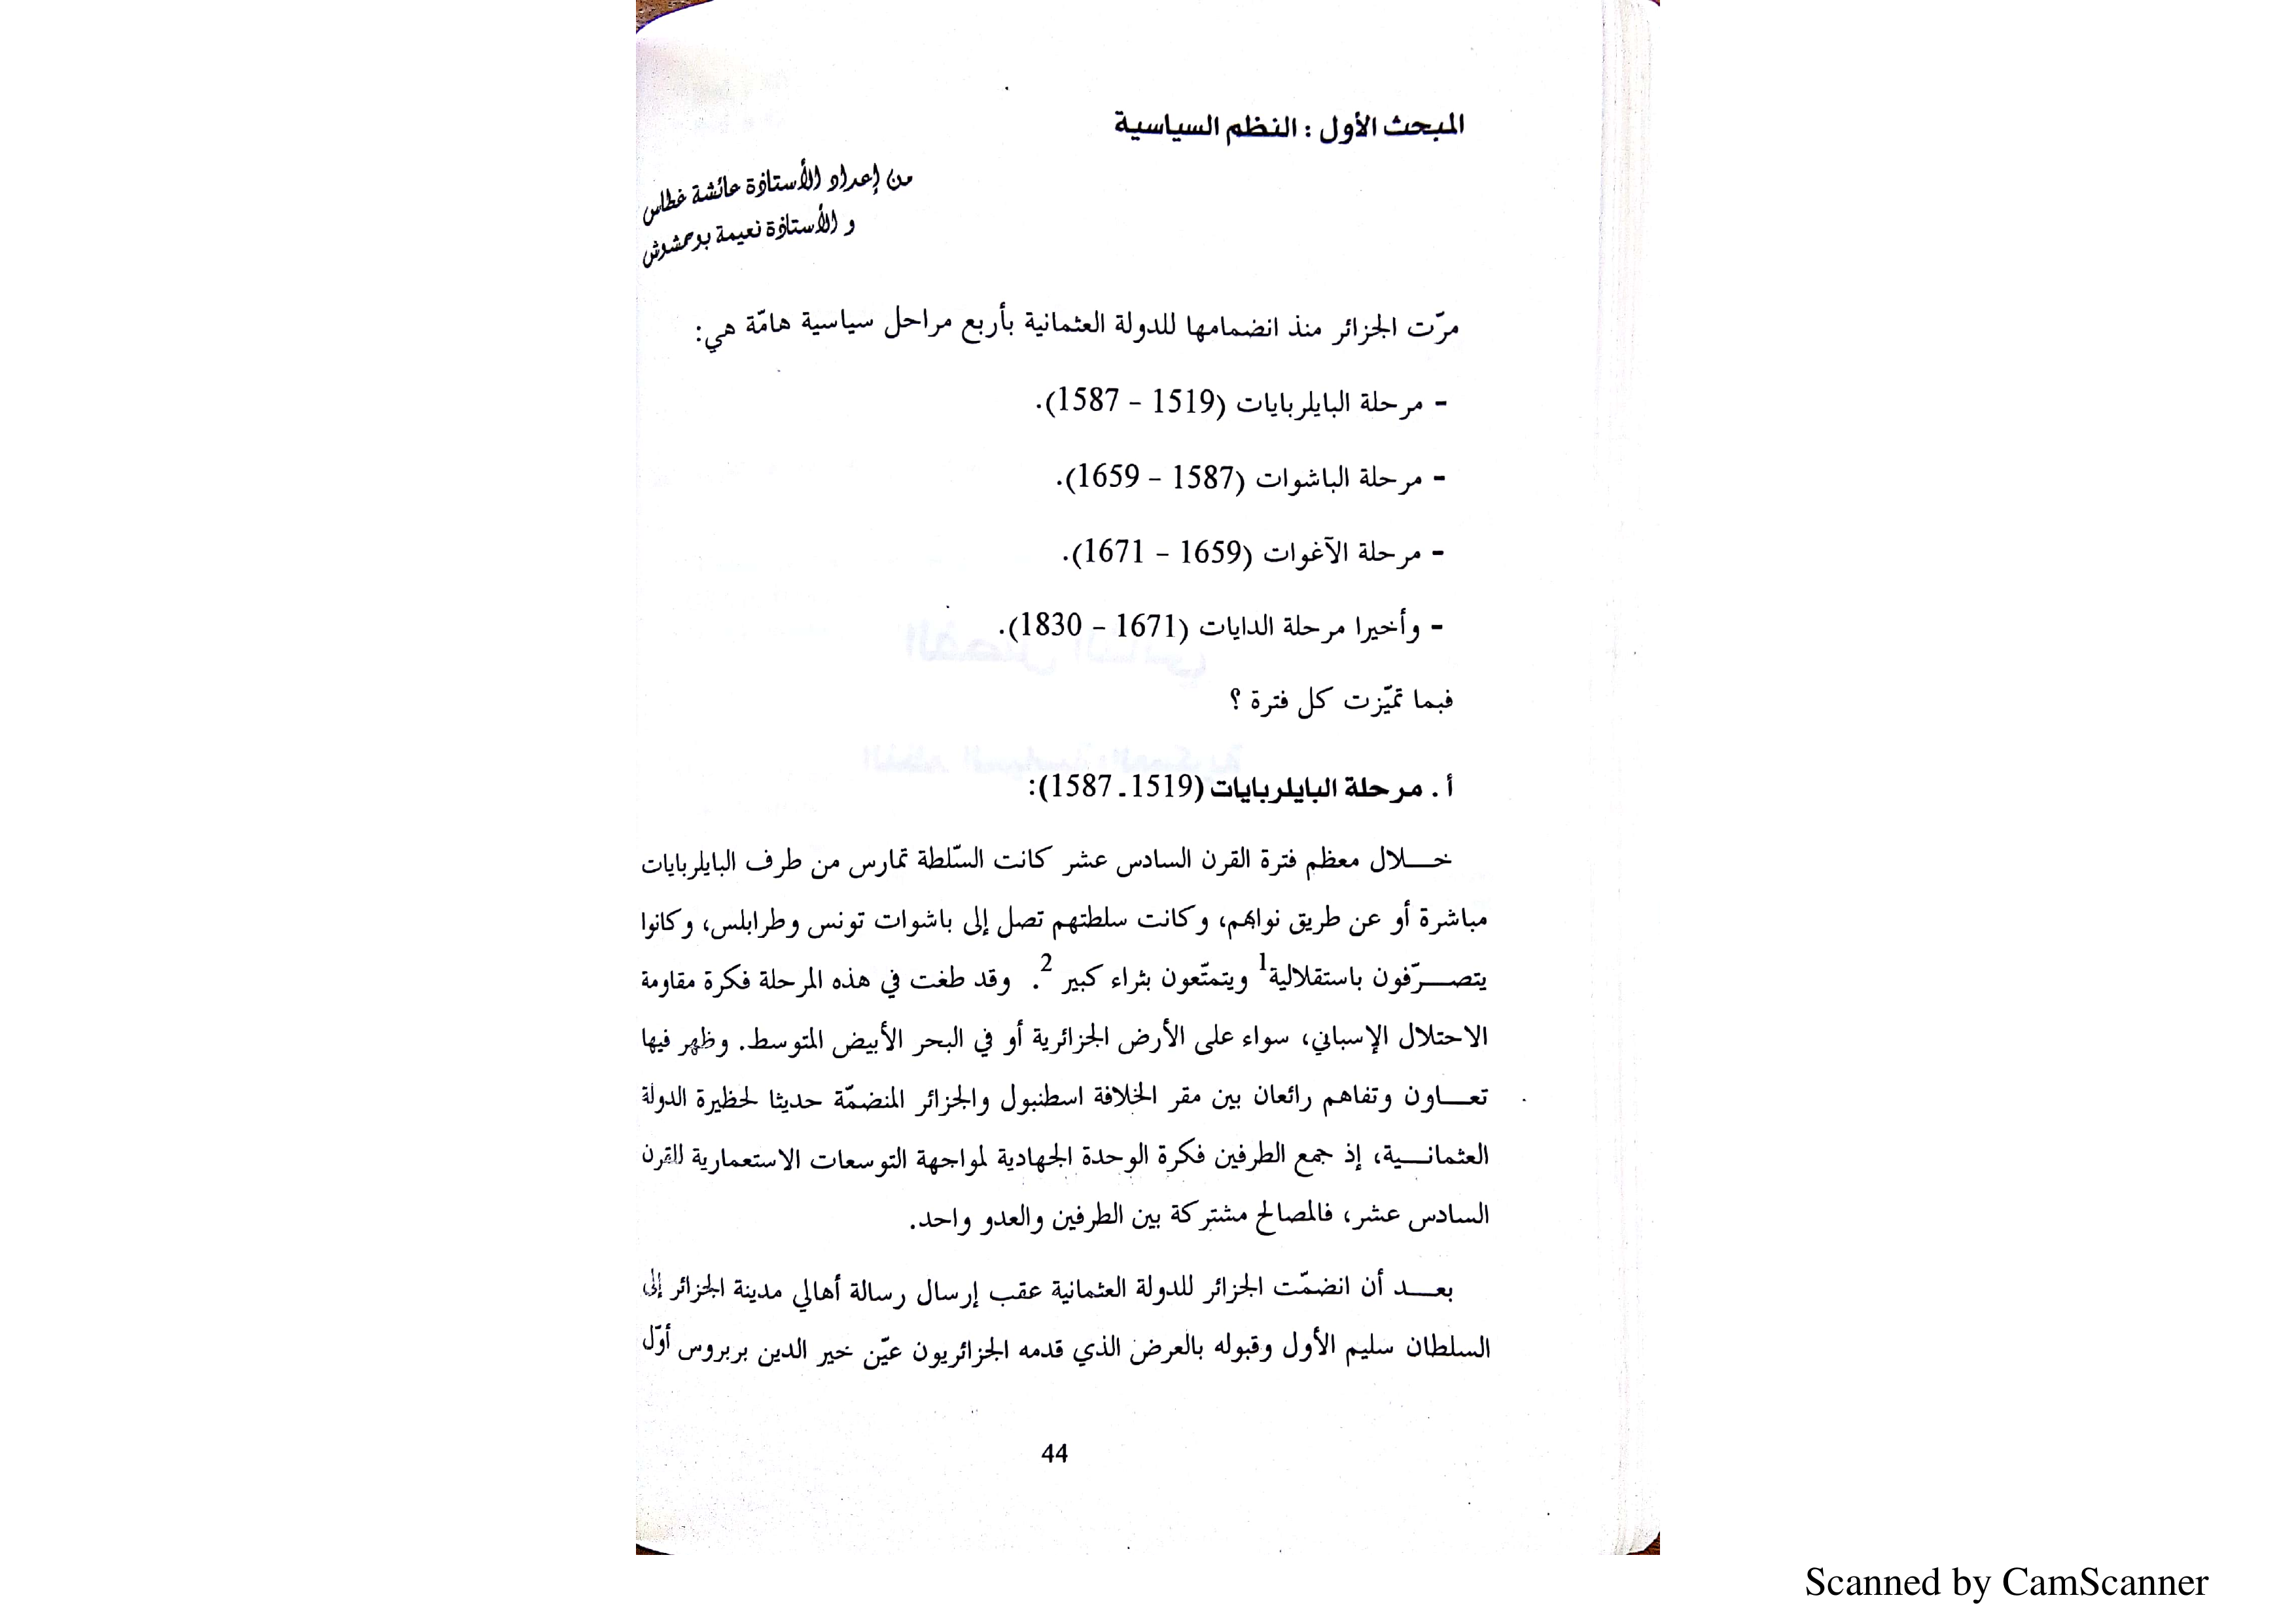 المبحث الأول : النظم السياسية
من إعداد الأستاذة عائشة غطاس
و الأستاذة نعيمة بوحمشوش
مرّت الجزائر منذ انضمامها للدولة العثمانية بأربع مراحل سياسية هامّة هي:
- مرحلة البايلربايات (1519 - 1587).
- مرحلة الباشوات (1587 - 1659).
- مرحلة الآغوات (1659 - 1671).
- وأخيرا مرحلة الدايات (1671 - 1830).
فبما تميّزت كل فترة ؟
أ . مرحلة البايلربايات (1519 ـ 1587):
خـــلال معظم فترة القرن السادس عشر كانت السّلطة تمارس من طرف البايلربايات
مباشرة أو عن طريق نوابهم، وكانت سلطتهم تصل إلى باشوات تونس وطرابلس، وكانوا
يتصــــرّفون باستقلالية1 ويتمتّعون بثراء كبير 2. وقد طغت في هذه المرحلة فكرة مقاومة
الاحتلال الإسباني، سواء على الأرض الجزائرية أو في البحر الأبيض المتوسط. وظهر فيها
تعـــاون وتفاهم رائعان بين مقر الخلافة اسطنبول والجزائر المنضمّة حديثا لحظيرة الدولة
العثمانــــية، إذ جمع الطرفين فكرة الوحدة الجهادية لمواجهة التوسعات الاستعمارية للقرن
السادس عشر، فالمصالح مشتركة بين الطرفين والعدو واحد.
بعـــد أن انضمّت الجزائر للدولة العثمانية عقب إرسال رسالة أهالي مدينة الجزائر إلى
السلطان سليم الأول وقبوله بالعرض الذي قدمه الجزائريون عيّن خير الدين بربروس أوّل
44
Scanned by CamScanner